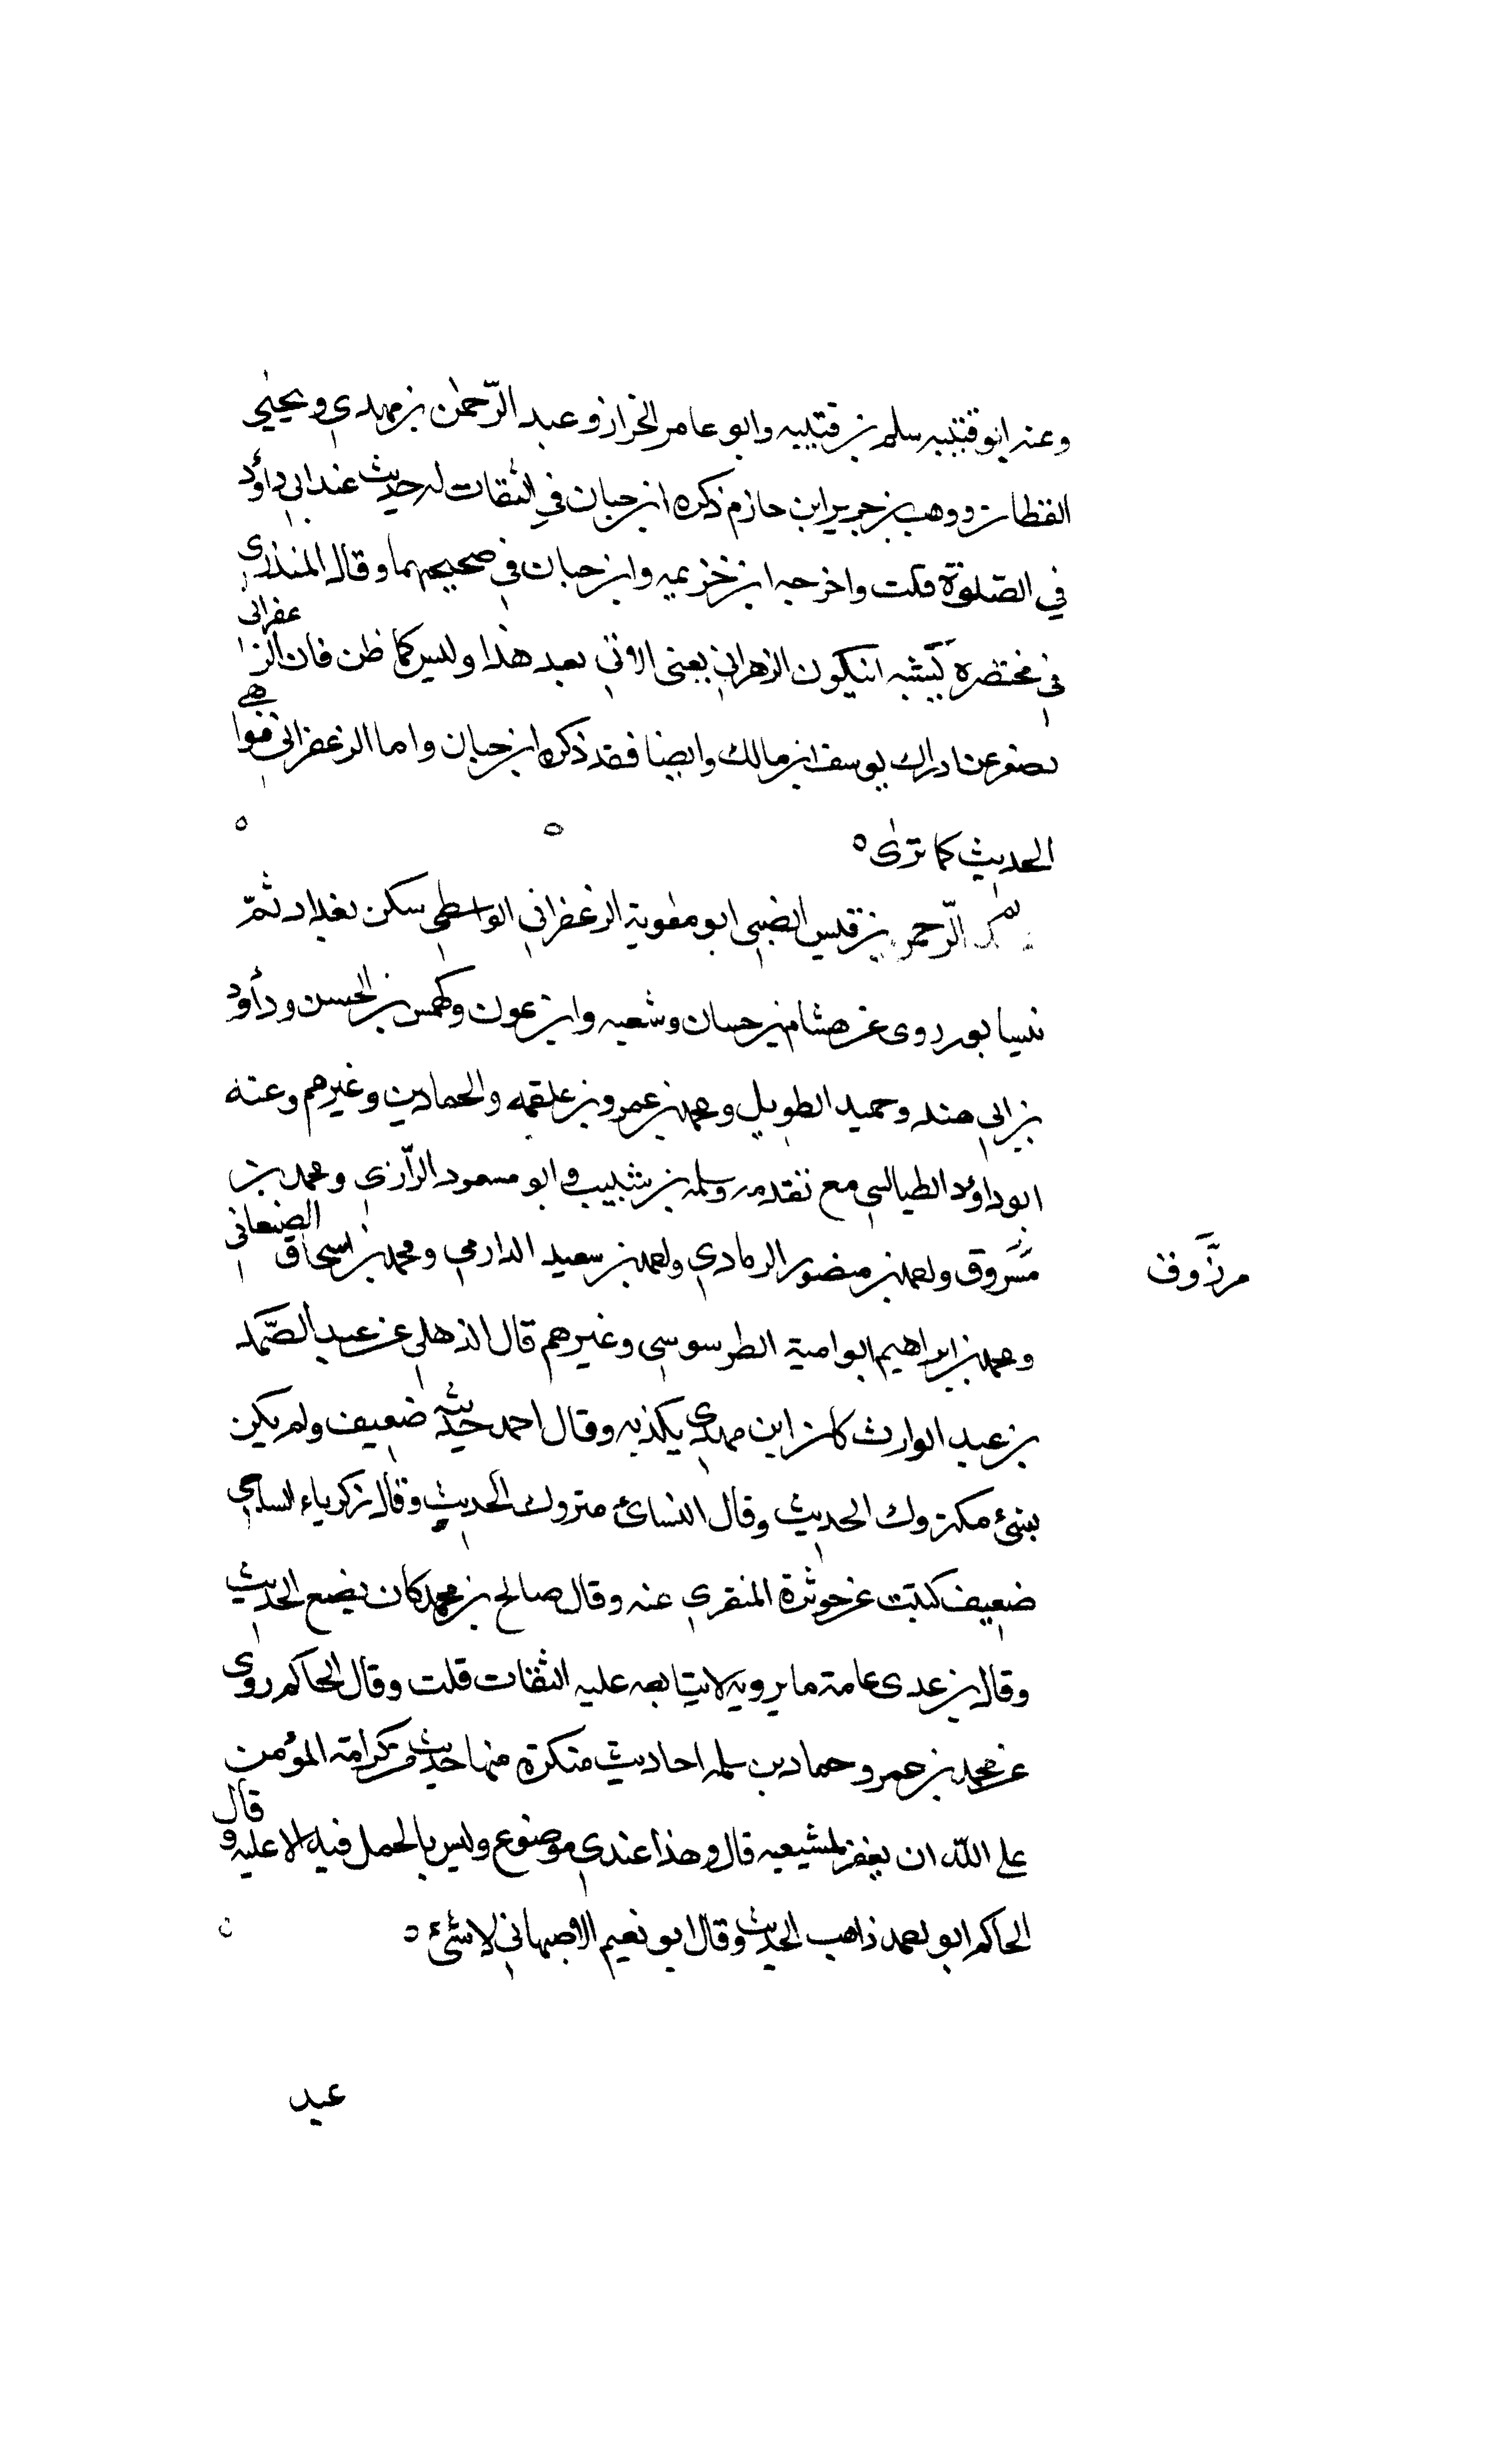 وعنه ابو قتيبه سلم بن قتيبه وابو عامر الخزاز وعبد الرّحمٰن بن مهدي ويحيٰي
القطان ووهب بن جرير ابن حازم ذكره ابن حبان في الثقات له حديث عند ابي داؤد
في الصّلوٰة قلت واخرجه ابن خزيمه وابن حبان في صحيحهما وقال المنذري
في مختصره يشبه ان يكون الزهراني يعنى الاٰتي بعد هٰذا وليس كما ظن فان الزعفرانى
يصغر عن ادراك يوسف ابن مالك وايضا فقد ذكره ابن حبان واما الزعفرانى فواهي
الحديث كما ترىٰ
الرّحمن بن قيس الضبي ابو معٰوية الزعفراني الواسطي سكن بغداد ثمّ
نيسابور روى عن هشام بن حسان وشعبه وابن عون وكهمس بن الحسن وداؤد
بن ابي هند وحميد الطويل ومحمد بن عمرو بن علقمه والحمادين وغيرهم وعنه
ابو داؤد الطيالسي مع تقدمه وسلمه بن شبيب وابو مسعود الرّازي ومحمد بن
مسروق واحمد بن منصور الرمادي واحمد بن سعيد الدارمي ومحمد بن اسحاق الصنعاني
مرزوق
ومحمد بن ابراهيم ابو امية الطرسوسي وغيرهم قال الذهلي عن عبد الصّمد
بن عبد الوارث كان ابن مهدي يكذبه وقال احمد حديثه ضعيف ولم يكن
بشئ متروك الحديث وقال النسائ متروك الحديث وقال زكرياء الساجي
ضعيف كتبت عن حوثرة المنقري عنه وقال صالح بن محمد كان يضع الحديث
وقال بن عدى عامة ما يرويه لا يتابعه عليه الثقات قلت وقال الحاكم روى
عن محمد بن عمرو حماد بن سلمه احاديث منكرة منها حديث من كرامة المؤمن
على اللّٰه ان يغفر لمشيعيه قال وهذا عندي موضوع وليس بالحمل فيه الا عليه وقال
الحاكم ابو احمد ذاهب الحديث وقال ابو نعيم الاصبهاني لا شئ
عبد